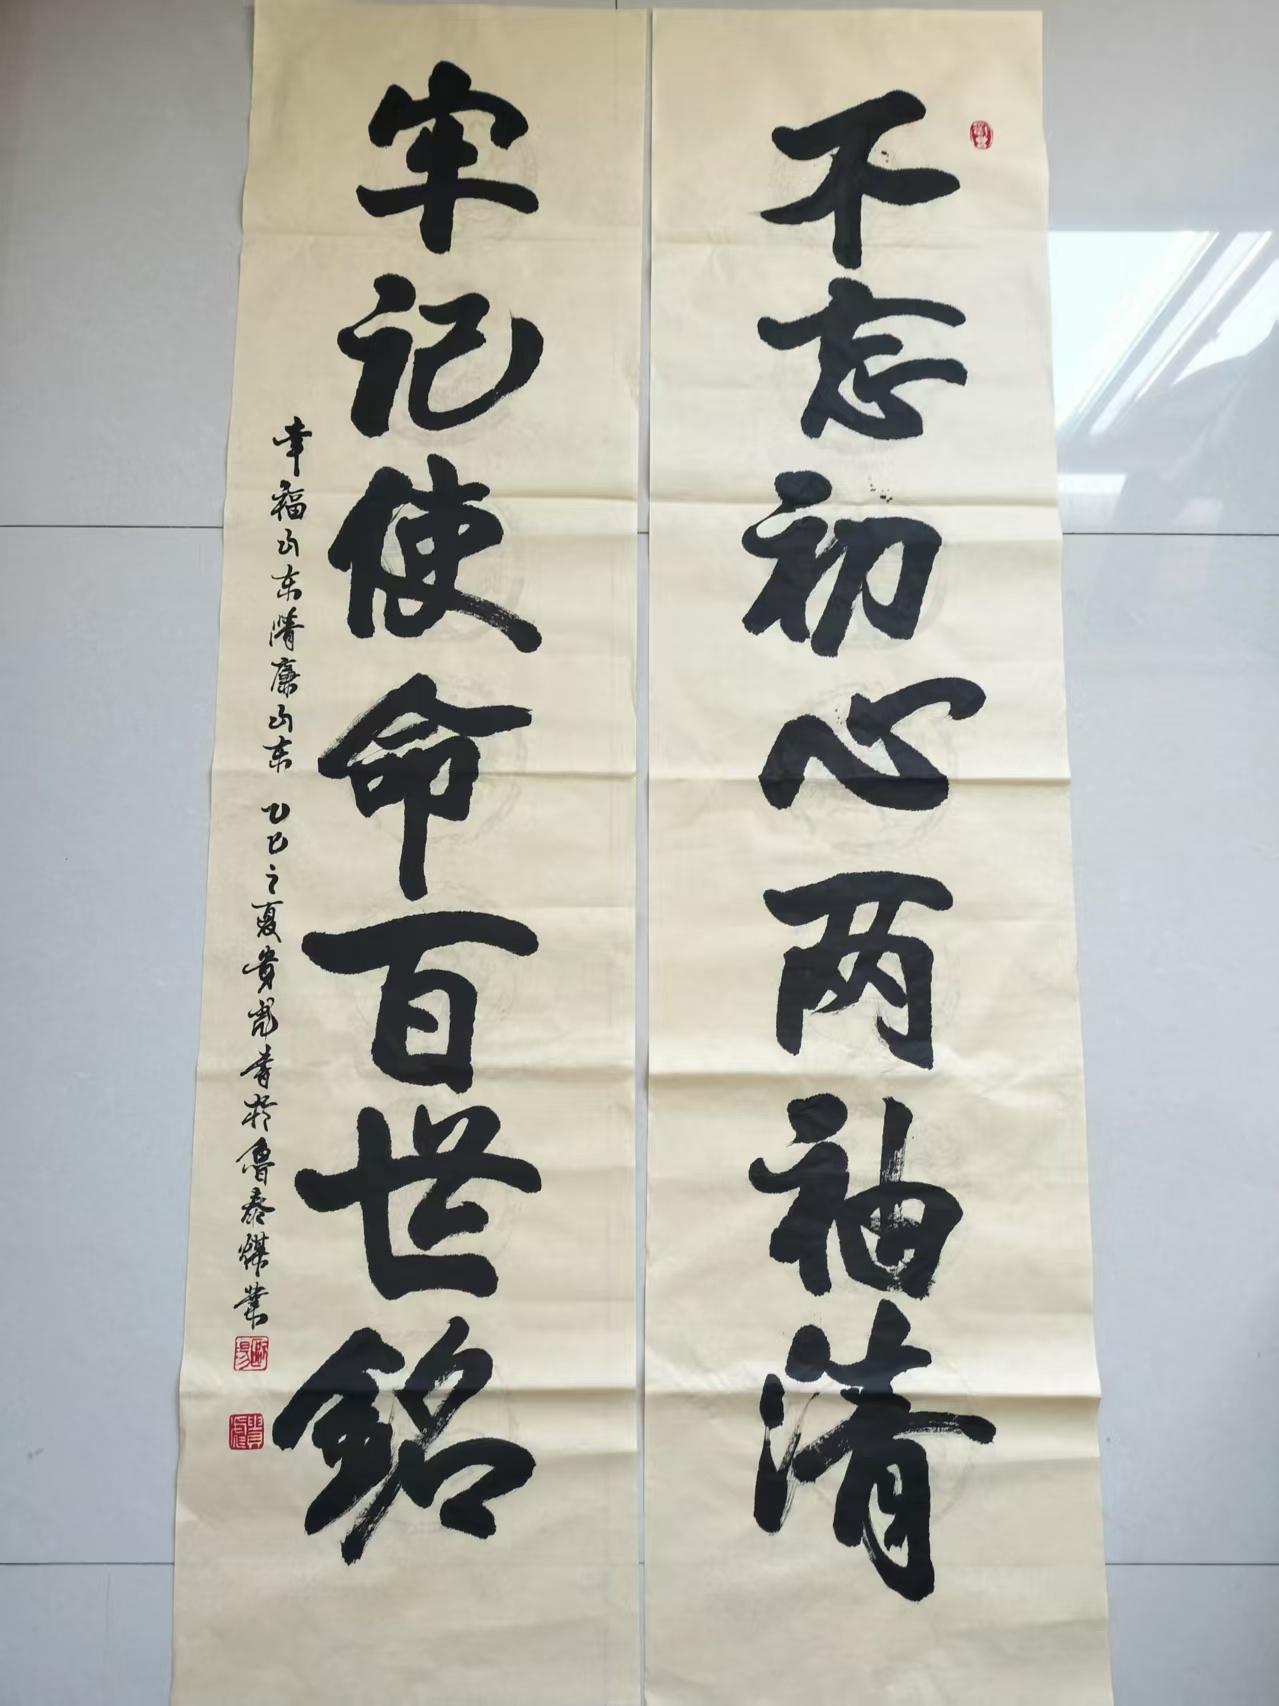 不忘初心两袖清
牢记使命百世銘
幸福山东清廉山东 乙巳之夏贵彪书於鲁泰煤業